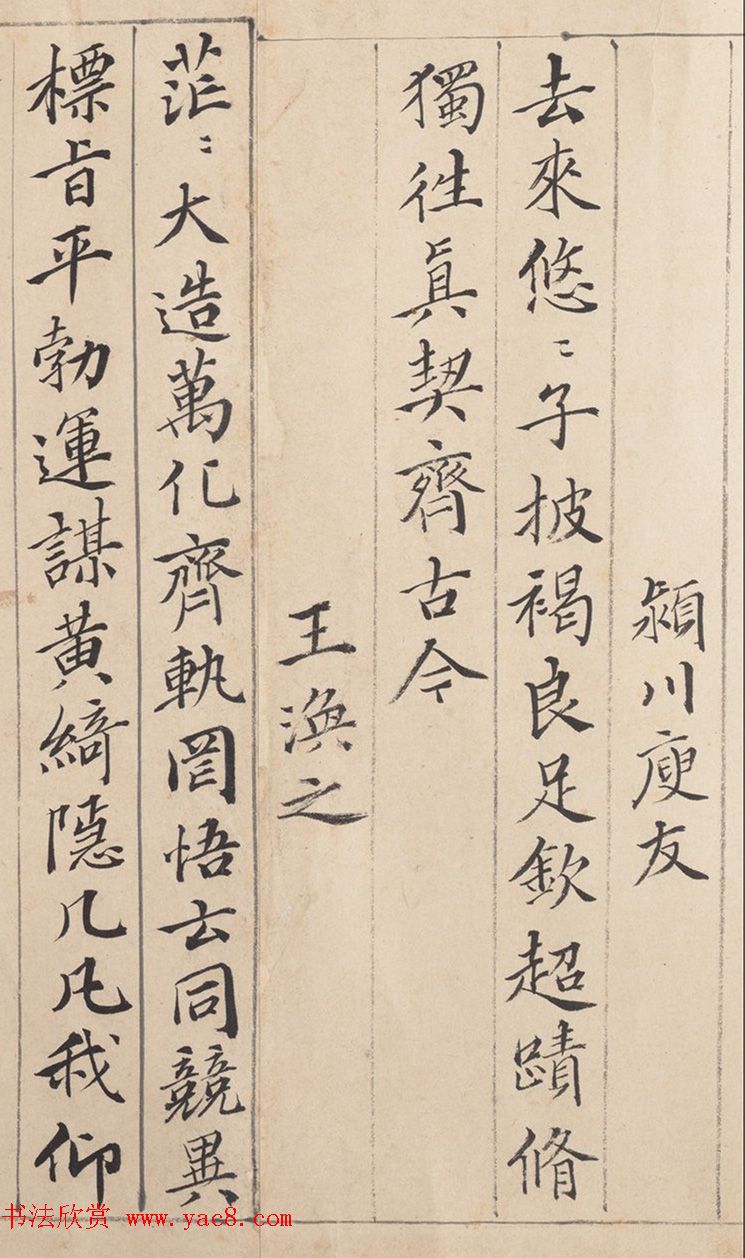 潁川庾友
去來悠〻子披褐良足欽超蹟脩
獨往真契齊古今
王渙之
茫〻大造萬化齊軌罔悟玄同競異
標旨平勃運謀黃綺隱几凡我仰
书法欣赏 www.yac8.com